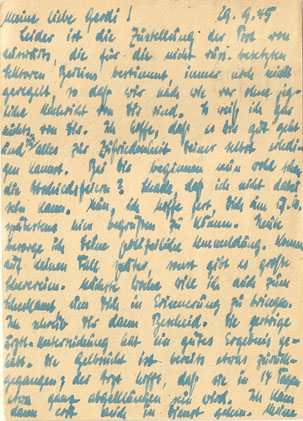 Meine liebe Gerdi! 29.9.45
Leider ist die Zustellung der Post von
auswärts, die für die nicht russ. besetzten
Sektoren Berlins bestimmt, immer noch nicht
geregelt, so daß wir nach wie vor ohne jeg-
liche Nachricht von Dir sind. So weiß ich gar
nichts von Dir. Ich hoffe, daß es Dir gut geht
und Du alles zur Zufriedenheit Deiner selbst erledi-
gen kannst. Bei Dir beginnen nun wohl schon
die Abschiedsfeiern? Schade, daß ich nicht dabei
sein kann. Nun, ich hoffe fest, Dich am
spätestens hier begrüßen zu können. Heute
besorge ich Deine polizeiliche Anmeldung. Komm
auf keinen Fall später, sonst gibt es große
Scherereien. Nächste Woche will ich auch zum
um Dich in Erinnerung zu bringen.
Ich schreibe Dir dann Bescheid. Die gestrige
ärztl. Untersuchung hat ein gutes Ergebnis ge-
habt. Die Gelbsucht ist bereits etwas zurück-
gegangen; der Arzt hofft, daß sie in 14 Tagen
etwa ganz abgeklungen sein wird. Ich kann
dann erst wieder in Dienst gehen. Meine